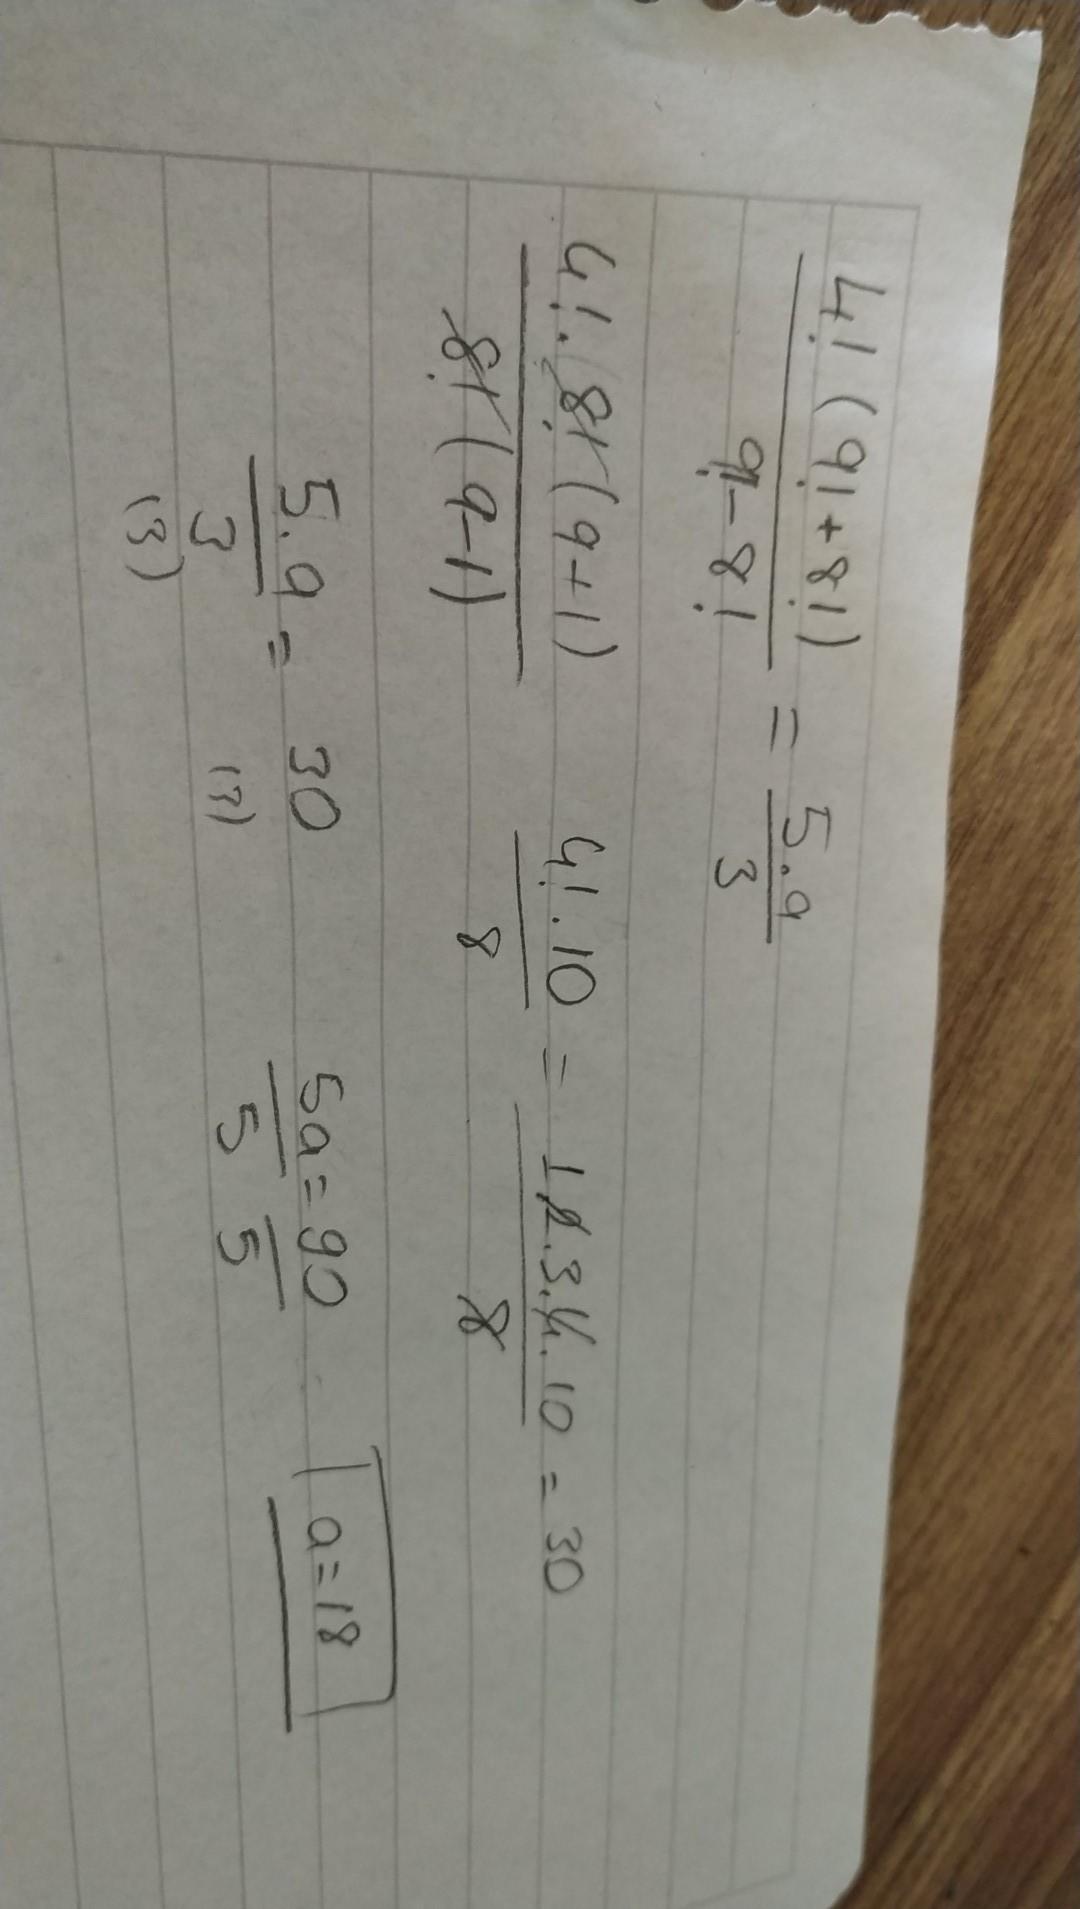 4!(9!+8!) / 9!-8! = 5.a / 3
4!.8!(9+1) / 8!(9-1) 4!.10 / 8 = 1.2.3.4.10 / 8 = 30
5.a / 3 = 30 5a / 5 = 90 / 5 a=18
(3) (3)